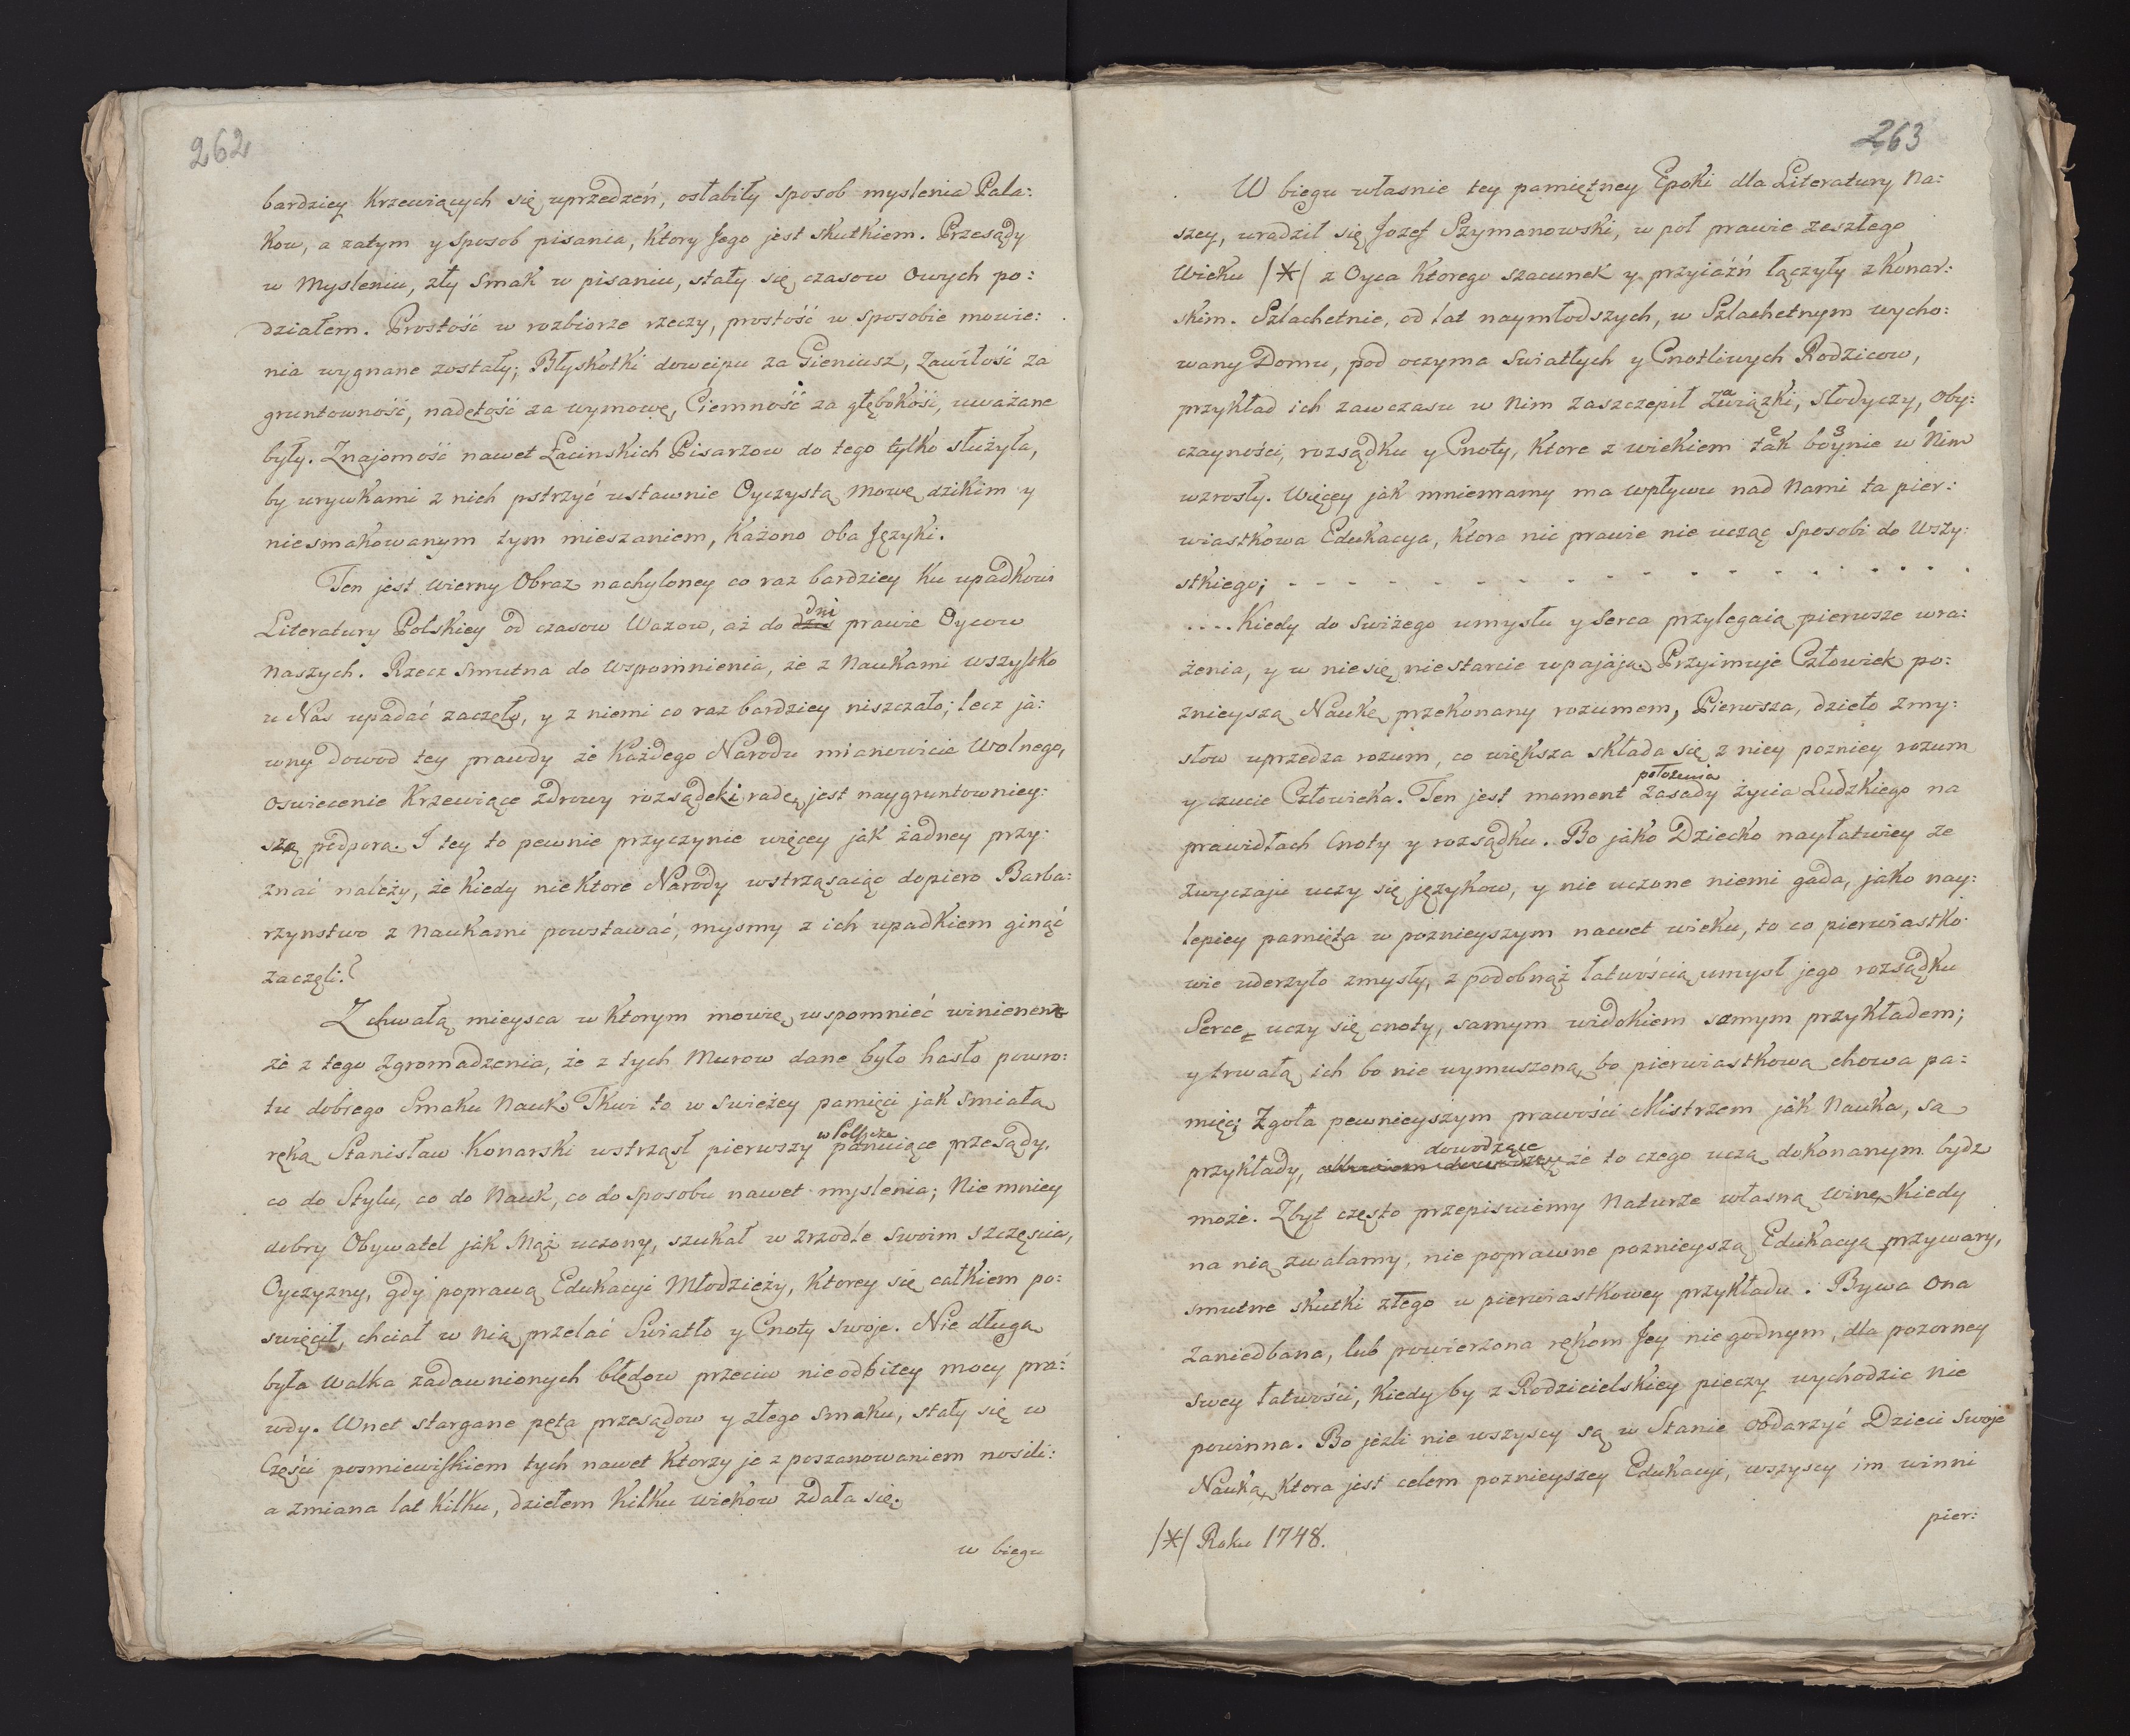 262
bardziey Krzewiących się uprzedzeń, osłabiły sposob myslenia Pola:
kow, a zatym y sposob pisania, ktory Jego jest skutkiem. Przesądy
w Mysleniu, zły Smak w pisaniu, stały się czasow Owych po:
działem. Prostość w rozbiorze rzeczy, prostość w sposobie mowie:
nia wygnane zostały; Błyskotki dowcipu za Gieniusz, Zawiłość za
gruntowność, nadętość za wymowę, Ciemność za głębokość, uważane
były. Znajomość nawet Łacinskich Pisarzow do tego tylko służyła,
by urywkami z nich pstrzyć ustawnie Oyczystą Mowę dzikim y
niesmakowanym tym mieszaniem, Każono Oba Języki.
Ten jest wierny Obraz nachyloney co raz bardziey Ku upadkowi
dni
Literatury Polskiey od czasow Wazow, aż do dziś prawie Oycow
Naszych. Rzecz Smutna do Wspomnienia, że z Naukami wszystko
u Nas upadać zaczęło, y z niemi co raz bardziey niszczało; lecz ja:
wny dowod tey prawdy że Każdego Narodu mianowicie Wolnego,
Oswiecenie Krzewiące zdrowy rozsądek i radę, jest naygruntowniey:
szą podporą. I tey to pewnie przyczynie więcey jak żadney przy:
znać należy, że Kiedy niektore Narody wstrząsaiąc dopiero Barba:
rzynstwo z Naukami powstawać, mysmy z ich upadkiem ginąć
zaczęli?
Z chwałą mieysca w ktorym mowię, wspomnieć winienem
że z tego zgromadzenia, że z tych Murow dane było hasło powro:
tu dobrego Smaku Nauk. Tkwi to w swieżey pamięci jak smiałą
w Polszcze
ręką Stanisław Konarski wstrząsł pierwszy panuiące przesądy,
co do Stylu, co do Nauk, co do sposobu nawet myslenia; Nie mniey
dobry Obywatel jak Mąż uczony, szukał w zrzodle swoim szczęscia,
Oyczyzny, gdy poprawą Edukacyi Młodzieży, Ktorey się całkiem po:
swięcił, chciał w nią przelać Swiatło y Cnoty swoje. Nie długa
była Walka zadawnionych błędow przeciw nieodbitey mocy pra:
wdy. Wnet stargane pęta przesądow y złego smaku, stały się w
Części posmiewiskiem tych nawet Ktorzy je z poszanowaniem nosili:
a zmiana lat Kilku, dziełem Kilku wiekow zdała się.
w biegu
263
W biegu własnie tey pamiętney Epoki dla Literatury Na:
szey, urodził się Jozef Szymanowski, w poł prawie zeszłego
Wieku /*/ z Oyca Ktorego szacunek y przyiaźń łączyły z Konar:
skim. Szlachetnie, od lat naymłodszych, w Szlachetnym wycho:
wany Domu, pod oczyma Swiatłych y Cnotliwych Rodzicow,
przykład ich zawczasu w Nim zaszczepił Zawiązki, Słodyczy, Oby:
2 3 1
czayności, rozsądku y Cnoty, Ktore z wiekiem tak boynie w Nim
wzrosły. Więcey jak mniemamy ma wpływu nad Nami ta pier:
wiastkowa Edukacya, Ktora nic prawie nie ucząc sposobi do Wszy:
stkiego; - - - - - - - - - - - - - - - - - - - -
.... Kiedy do swiżego umysłu y Serca przylegaią pierwsze wra:
żenia, y w nie się niestarcie wpajają. Przyimuje Człowiek po:
znieyszą Naukę przekonany rozumem, Pierwsza, dzieło Zmy:
słow uprzedza rozum, co większa składa się z niey pozniey rozum
położenia
y czucie Człowieka. Ten jest moment Zasady życia Ludzkiego na
prawidłach Cnoty y rozsądku. Bo jako Dziecko nayłatwiey ze
zwyczaju uczy się językow, y nie uczone niemi gada, jako nay:
lepiey pamięta w poznieyszym nawet wieku, to co pierwiastko:
wie uderzyło zmysły, z podobnąż łatwością umysł jego rozsądku
Serce uczy się cnoty, samym widokiem samym przykładem;
y trwałą ich bo nie wymuszoną, bo pierwiastkową chowa pa:
mięć; Zgoła pewnieyszym prawości Mistrzem jak Nauka, są
dowodzące
przykłady, że to czego uczą dokonanym bydz
może. Zbyt często przepisuiemy Naturze własną winę, Kiedy
na nią zwalamy, nie poprawne poznieyszą Edukacyą przywary,
smutne skutki złego w pierwiastkowey przykładu. Bywa Ona
zaniedbana, lub powierzona rękom Jey niegodnym, dla pozorney
swey łatwości, Kiedy by z Rodzicielskiey pieczy wychodzic nie
powinna. Bo jeżli nie wszyscy są w Stanie obdarzyć Dzieci Swoje
Nauką, Ktora jest celem poznieyszey Edukacyi, wszyscy im winni
pier:
/*/ Roku 1748.